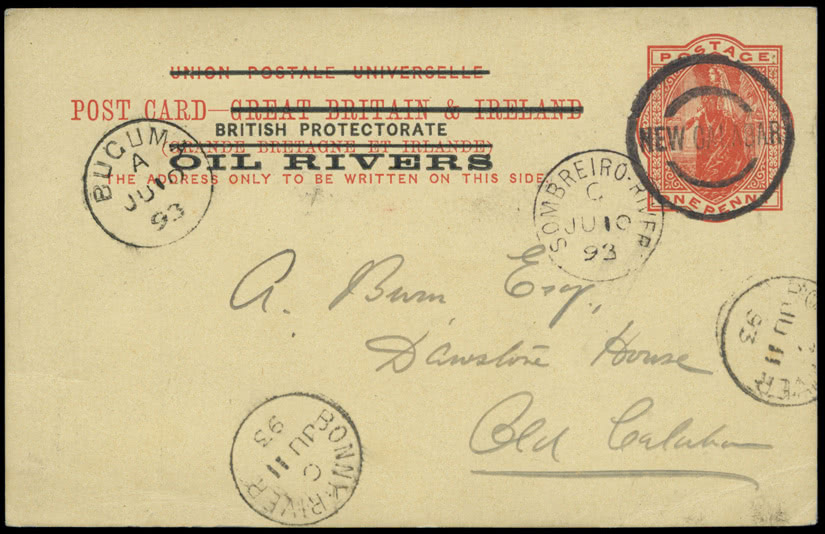 UNION POSTALE UNIVERSELLE
POST CARD—GREAT BRITAIN & IRELAND
BRITISH PROTECTORATE
(GRANDE BRETAGNE ET IRLANDE)
OIL RIVERS
THE ADDRESS ONLY TO BE WRITTEN ON THIS SIDE
POSTAGE
ONE PENNY
NEW CALABAR
BUGUMA
A
JU 10
93
SOMBREIRO-RIVER
C
JU 10
93
A. Esq.,
House
Old Calabar
BONNY-RIVER
C
JU 11
93
JU 11
93